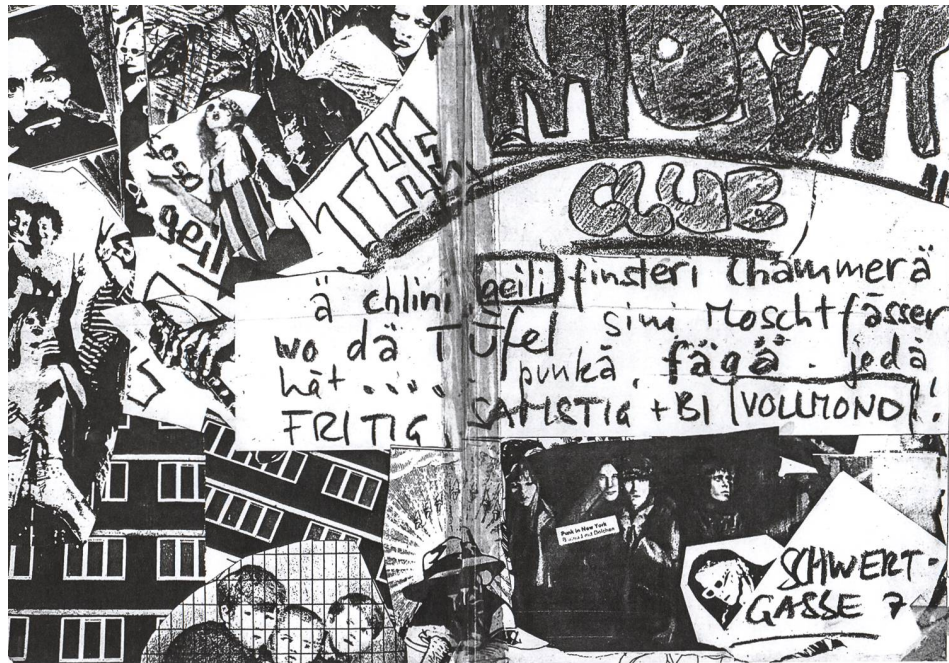 THE MOSCHT
CLUB
so
geil
ä chlini geili finsteri Chammerä
wo dä Tüfel sini Moschtfässer
hät..... punkä. fägä. jedä
FRITIG, SAMSTIG + BI VOLLMOND!!
Punk in New York
SCHWERT-
GASSE 7